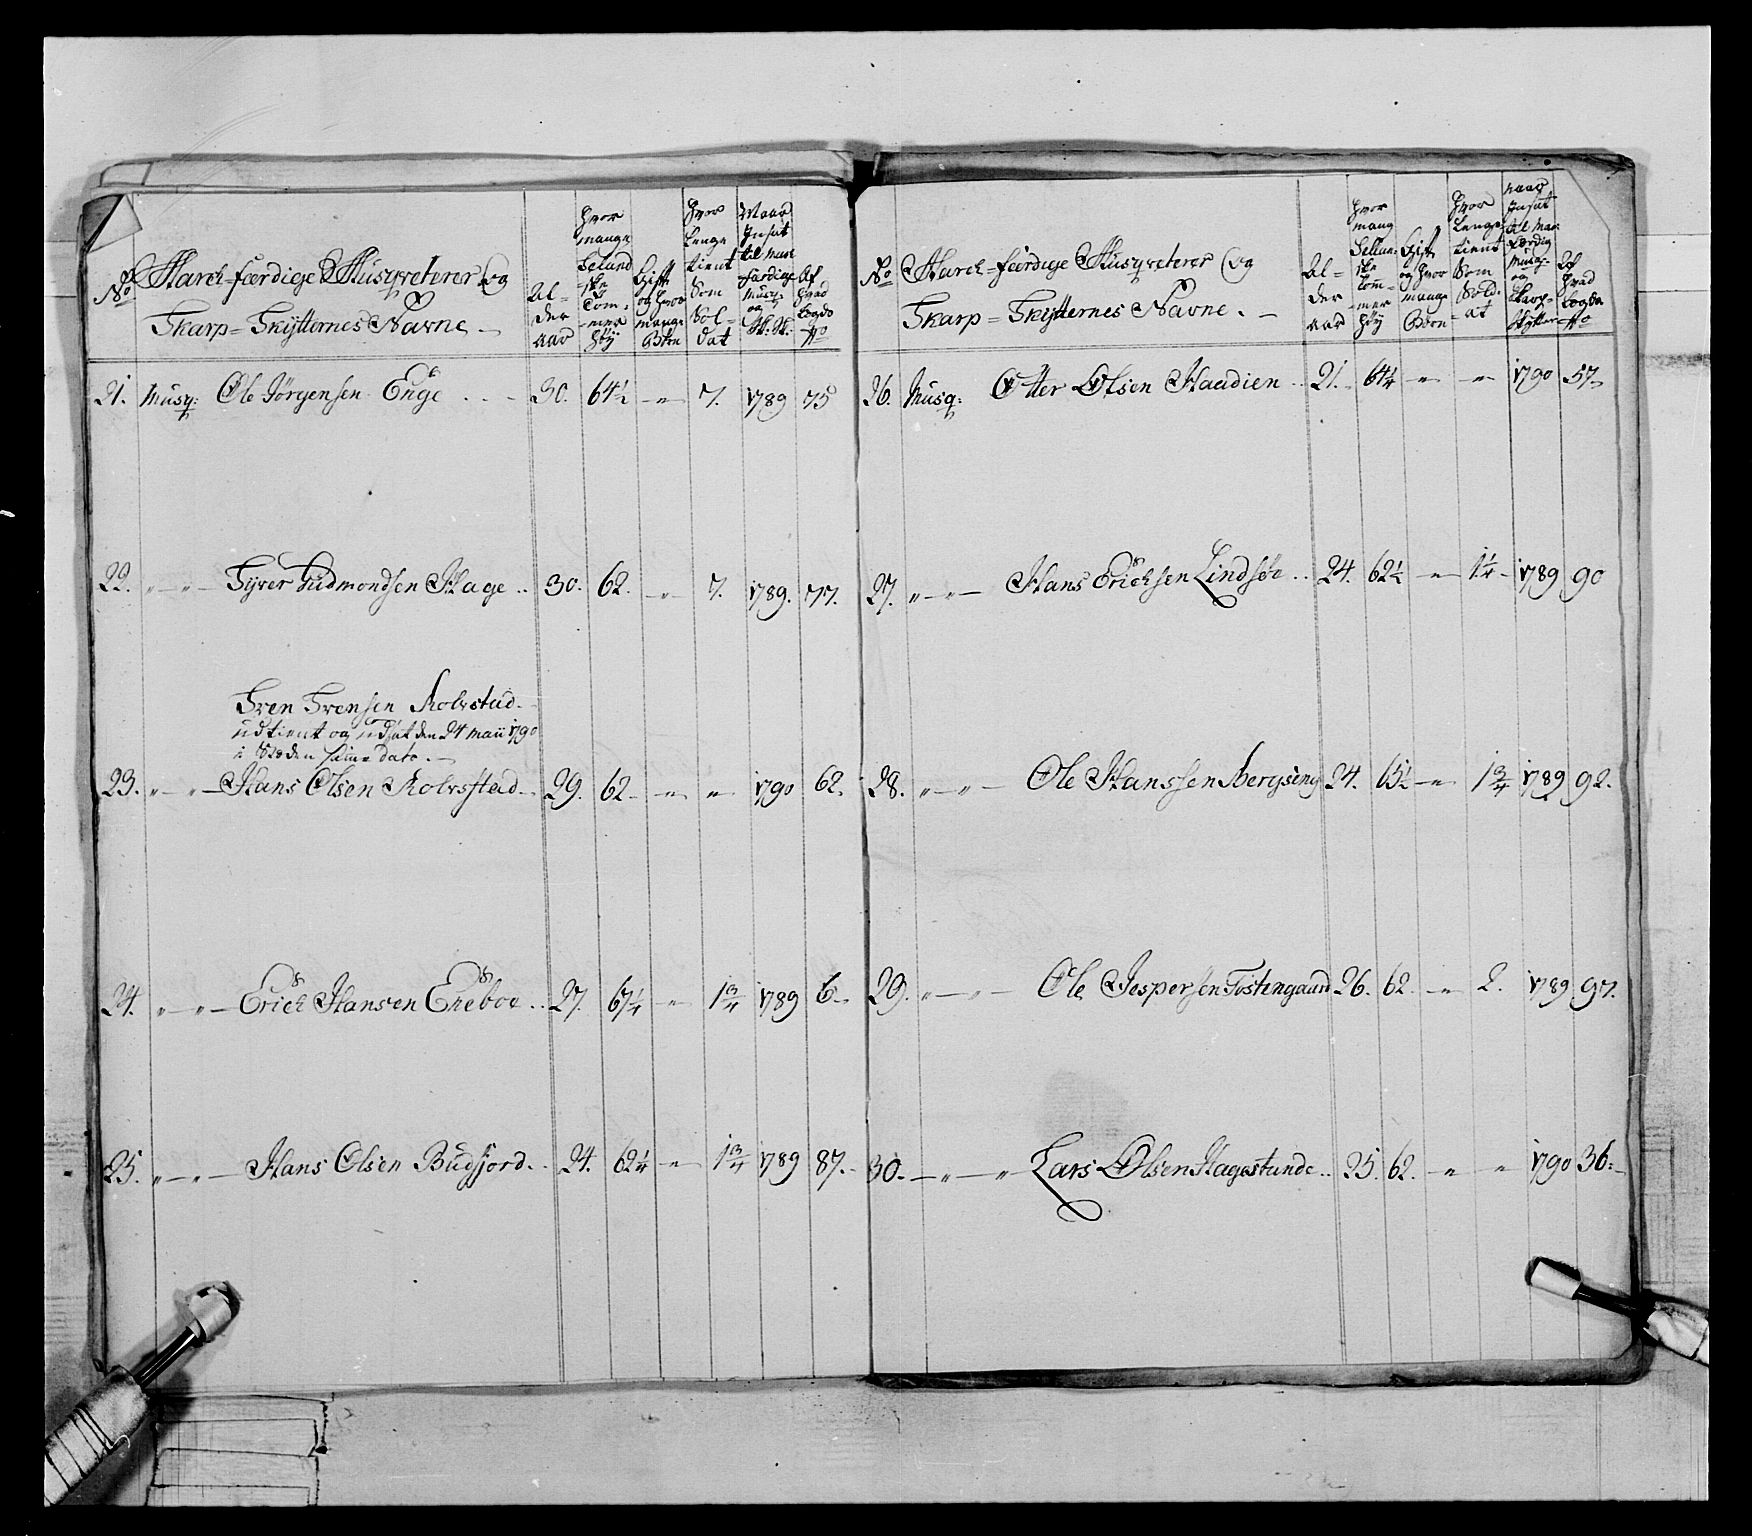 No March-færdige Musqveterer og
Skarp-Skytternes Navne.
Al-
der
aar
hvor
mange
Seland
ske
Tom-
mer
høy
Gift
og hvor
mange
Børn
hvor
lenge
tient
Som
Sol-
dat
Naar
Insat
til Mar
færdige
Musq:
og
Sk: Sk:
Af
hvad
Legds
No
21. Musq: Ole Jörgensen Enge 30. 64½ " 7. 1789 75
22. " " Syver Gudmondsen Hage 30. 62. " 7. 1789. 77.
Sven Svensen Rolvstad
udtient og udsat den 24 maii 1790
i Steden samme dato.
23. " " Hans Olsen Rolvsstad 29. 62 " " 1790 62.
24. " " Erich Hansen Eneboe 27. 67¼ " 1¾ 1789 6
25. " " Hans Olsen Budsjord 24. 62¼ " 1¾ 1789 87.
No March-færdige Musqveterer og
Skarp-Skytternes Navne.
Al-
der
aar
hvor
mang
Selan-
ske
Tom-
mer
høy
Gift
og hvor
mange
Børn
hvor
lenge
tient
Som
Sold-
at
naar
Insat
til Mar
færdig
Musq:
og
Skarp-
Skytter
Af
hvad
Legds
No
26. Musq: Otter Olsen Haadien 21. 64¼ " " 1790 57
27. " " Hans Erichsen Lindsøe 24. 62½ " 1¼ 1789 90
28. " " Ole Hanssen Bergseng 24. 65½ " 1¾ 1789 92.
29. " " Ole Jespersen Tostengaard 26. 62. " 2. 1789 97.
30. " " Lars Olsen Hagestande 25. 62. " " 1790 36.